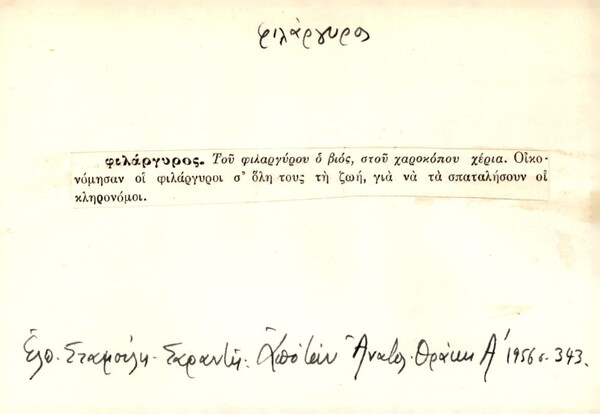 φιλάργυρος
φιλάργυρος. Τοῦ φιλαργύρου ὁ βιός, στοῦ χαροκόπου χέρια. Οἰκο-
νόμησαν οἱ φιλάργυροι σ' ὅλη τους τὴ ζωή, γιὰ νὰ τὰ σπαταλήσουν οἱ
κληρονόμοι.
Ἐλπ. Σταμούλη-Σαραντῆ: Ἀπὸ τὴν Ἀνατολ. Θράκη Α' 1956 σ. 343.